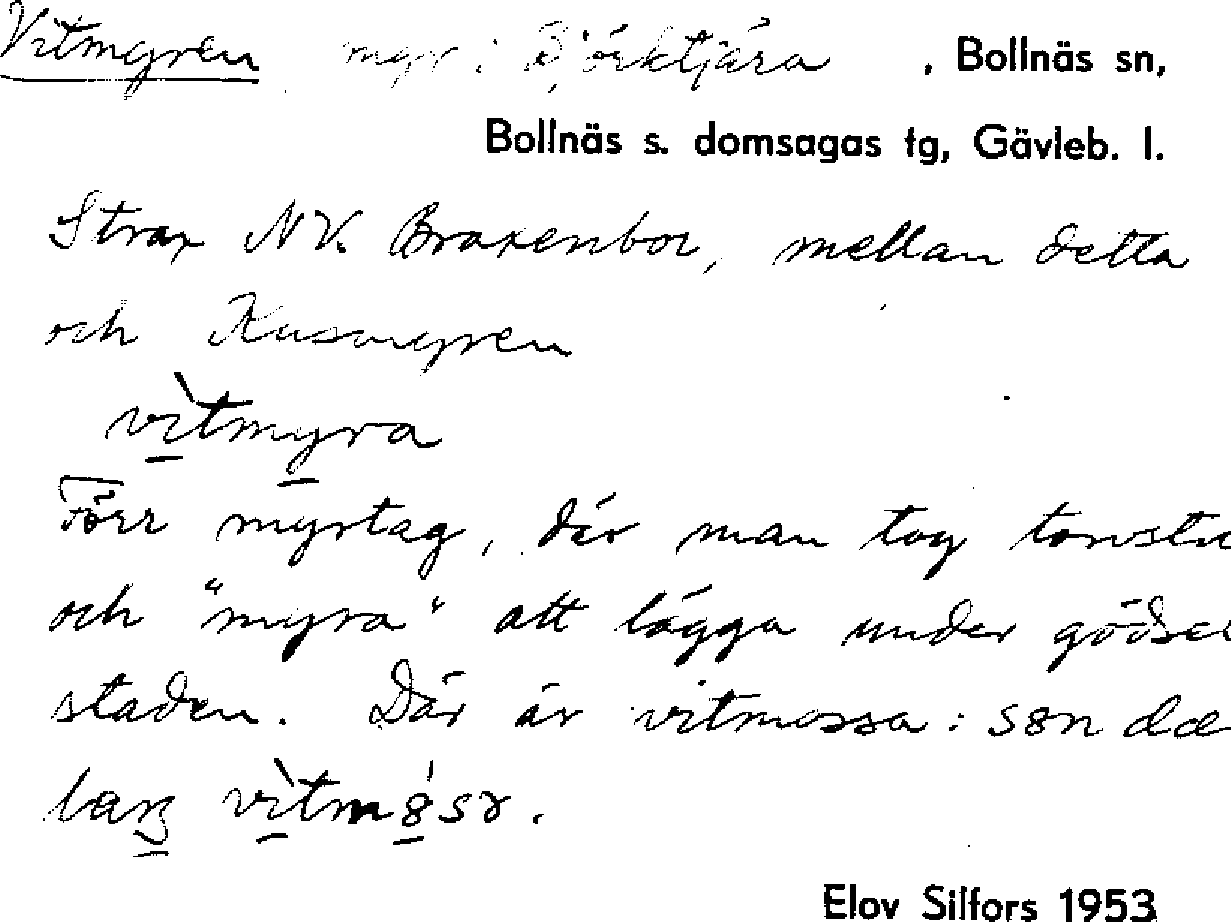 Vitmyren myr i Björktjära , Bollnäs sn,
Bollnäs s. domsagas tg, Gävleb. l.
Strax NV. Braxenbor, mellan detta
och Kusmyren
vìtmyra
Förr myrtag, där man tog
och "myra" att lägga under gödsel
staden. Där är vitmossa:
vìtm
Elov Silfors 1953